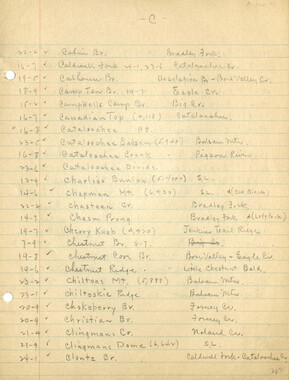 - C -
22-6 ✓ Cabin Br. Bradley Fork.
16-7 ✓ Caldwell Fork 24-1, 23-6 Cataloochee Cr.
19-5 ✓ Calhoun Br. Desolation Br - Bone Valley Cr.
18-9 ✓ Camp Ten Br. 19-7 Eagle Cr.
15-2 ✓ Campbells Camp Br. Big Cr.
16-7 ✓ Canadian Top Cataloochee.
16-8 ✓ Cataloochee
23-5 ✓ Cataloochee Balsam Balsam Mtns.
16-8 ✓ Cataloochee Creek Pigeon River
23-6 ✓ Cataloochee Divide
13-9 ✓ Charlies Bunion S.L.
14-6 ✓ Chapman Mt. S.L.
22-2 ✓ Chasteen Cr. Bradley Fork
14-7 ✓ Chasm Prong Bradley Fork
19-7 ✓ Cherry Knob Jenkins Trail Ridge
7-9 ✓ Chestnut Br. S.7.
19-8 ✓ Chestnut Cove Br. Bone Valley - Eagle Cr.
19-6 ✓ Chestnut Ridge Little Chestnut Bald.
23-2 ✓ Chiltoes Mt. Balsam Mtns
23-1 ✓ Chiltoskie Ridge Balsam Mtns
20-9 ✓ Chokeberry Br. Forney Cr.
20-9 ✓ Christian Br. Forney Cr.
21-7 ✓ Clingmans Cr. Noland Cr.
21-9 ✓ Clingmans Dome (6,642) S.L.
24-1 ✓ Clontz Br. Caldwell Fork - Cataloochee Cr.